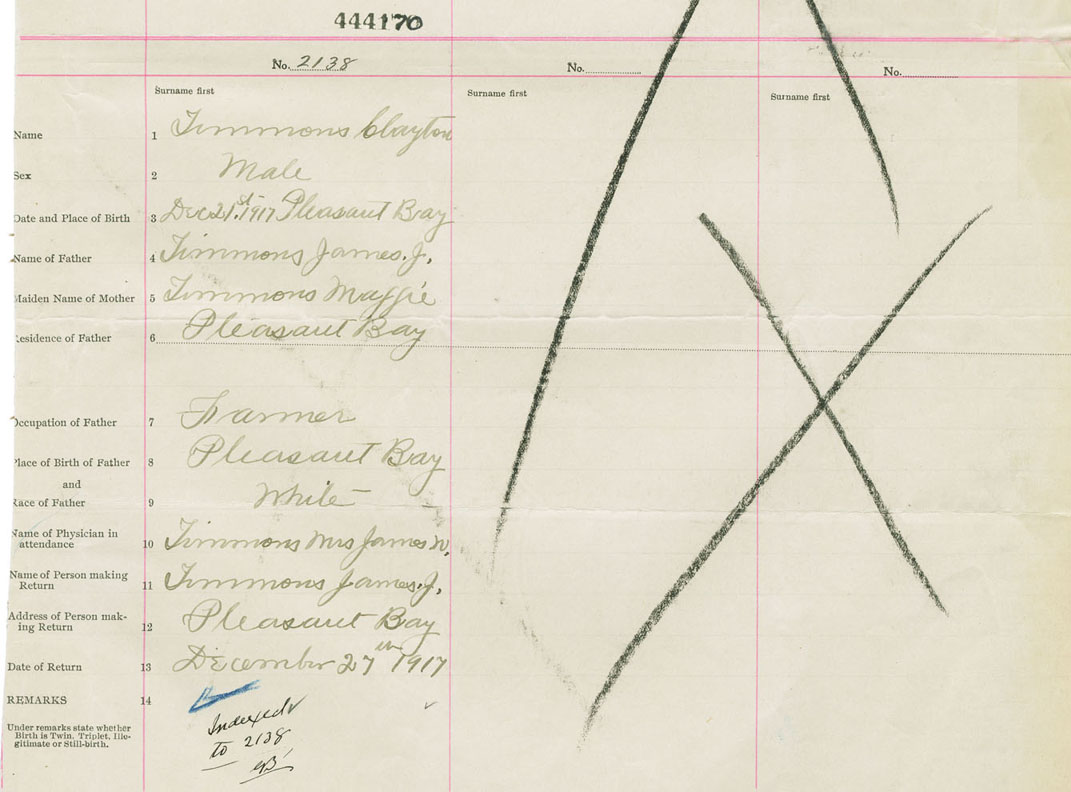 444170
No. 2138 No. No.
Surname first Surname first Surname first
Name 1 Timmons Clayton
Sex 2 Male
Date and Place of Birth 3 Dec 21st. 1917 Pleasant Bay
Name of Father 4 Timmons James. J.
Maiden Name of Mother 5 Timmons Maggie
Residence of Father 6 Pleasant Bay
Occupation of Father 7 Farmer
Place of Birth of Father 8 Pleasant Bay
and
Race of Father 9 White
Name of Physician in
attendance 10 Timmons Mrs James W.
Name of Person making
Return 11 Timmons James. J.
Address of Person mak-
ing Return 12 Pleasant Bay
Date of Return 13 December 27th 1917
REMARKS 14
Under remarks state whether
Birth is Twin, Triplet, Ille-
gitimate or Still-birth.
Indexed
to 2138